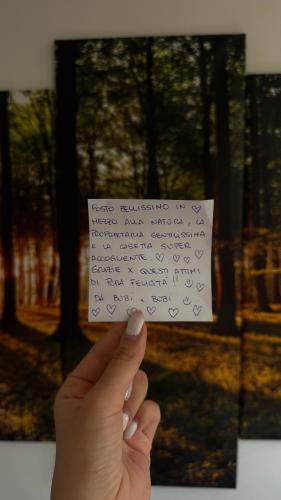 POSTO BELLISSIMO IN ♡
MEZZO ALLA NATURA, LA
PROPRIETARIA GENTILISSIMA
E LA CASETTA SUPER
ACCOGLIENTE. ♡ ♡ ♡ ♡
GRAZIE X QUESTI ATTIMI
DI PURA FELICITÀ!! ☺ ♡
DA BUBI e BUBI ☺